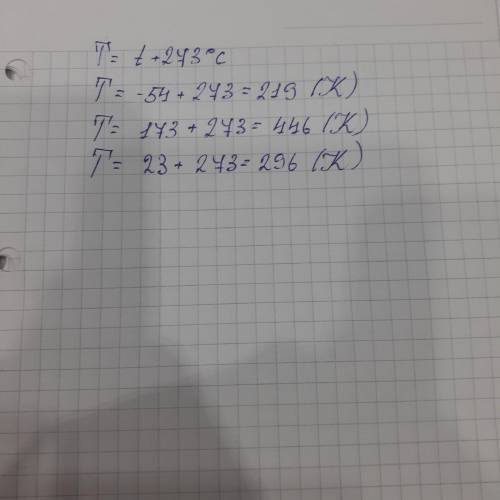 T = t + 273°C
T = -54 + 273 = 219 (K)
T = 173 + 273 = 446 (K)
T = 23 + 273 = 296 (K)